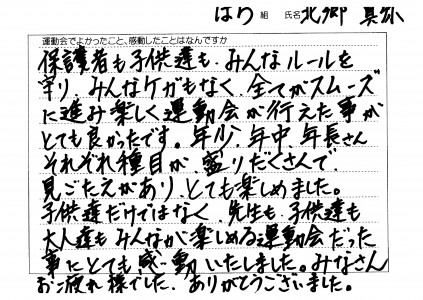 はり組 氏名 北郷 真弥
運動会でよかったこと、感動したことはなんですか
保護者も子供達も、みんなルールを
守り、みんなケガもなく、全てがスムーズ
に進み楽しく運動会が行えた事が
とても良かったです。年少、年中、年長さん
それぞれ種目が、盛りだくさんで、
見ごたえがあり、とても楽しめました。
子供達だけではなく、先生も、子供達も
大人達もみんなが楽しめる運動会だった
事にとても感動いたしました。みなさん
お疲れ様でした。ありがとうございました。